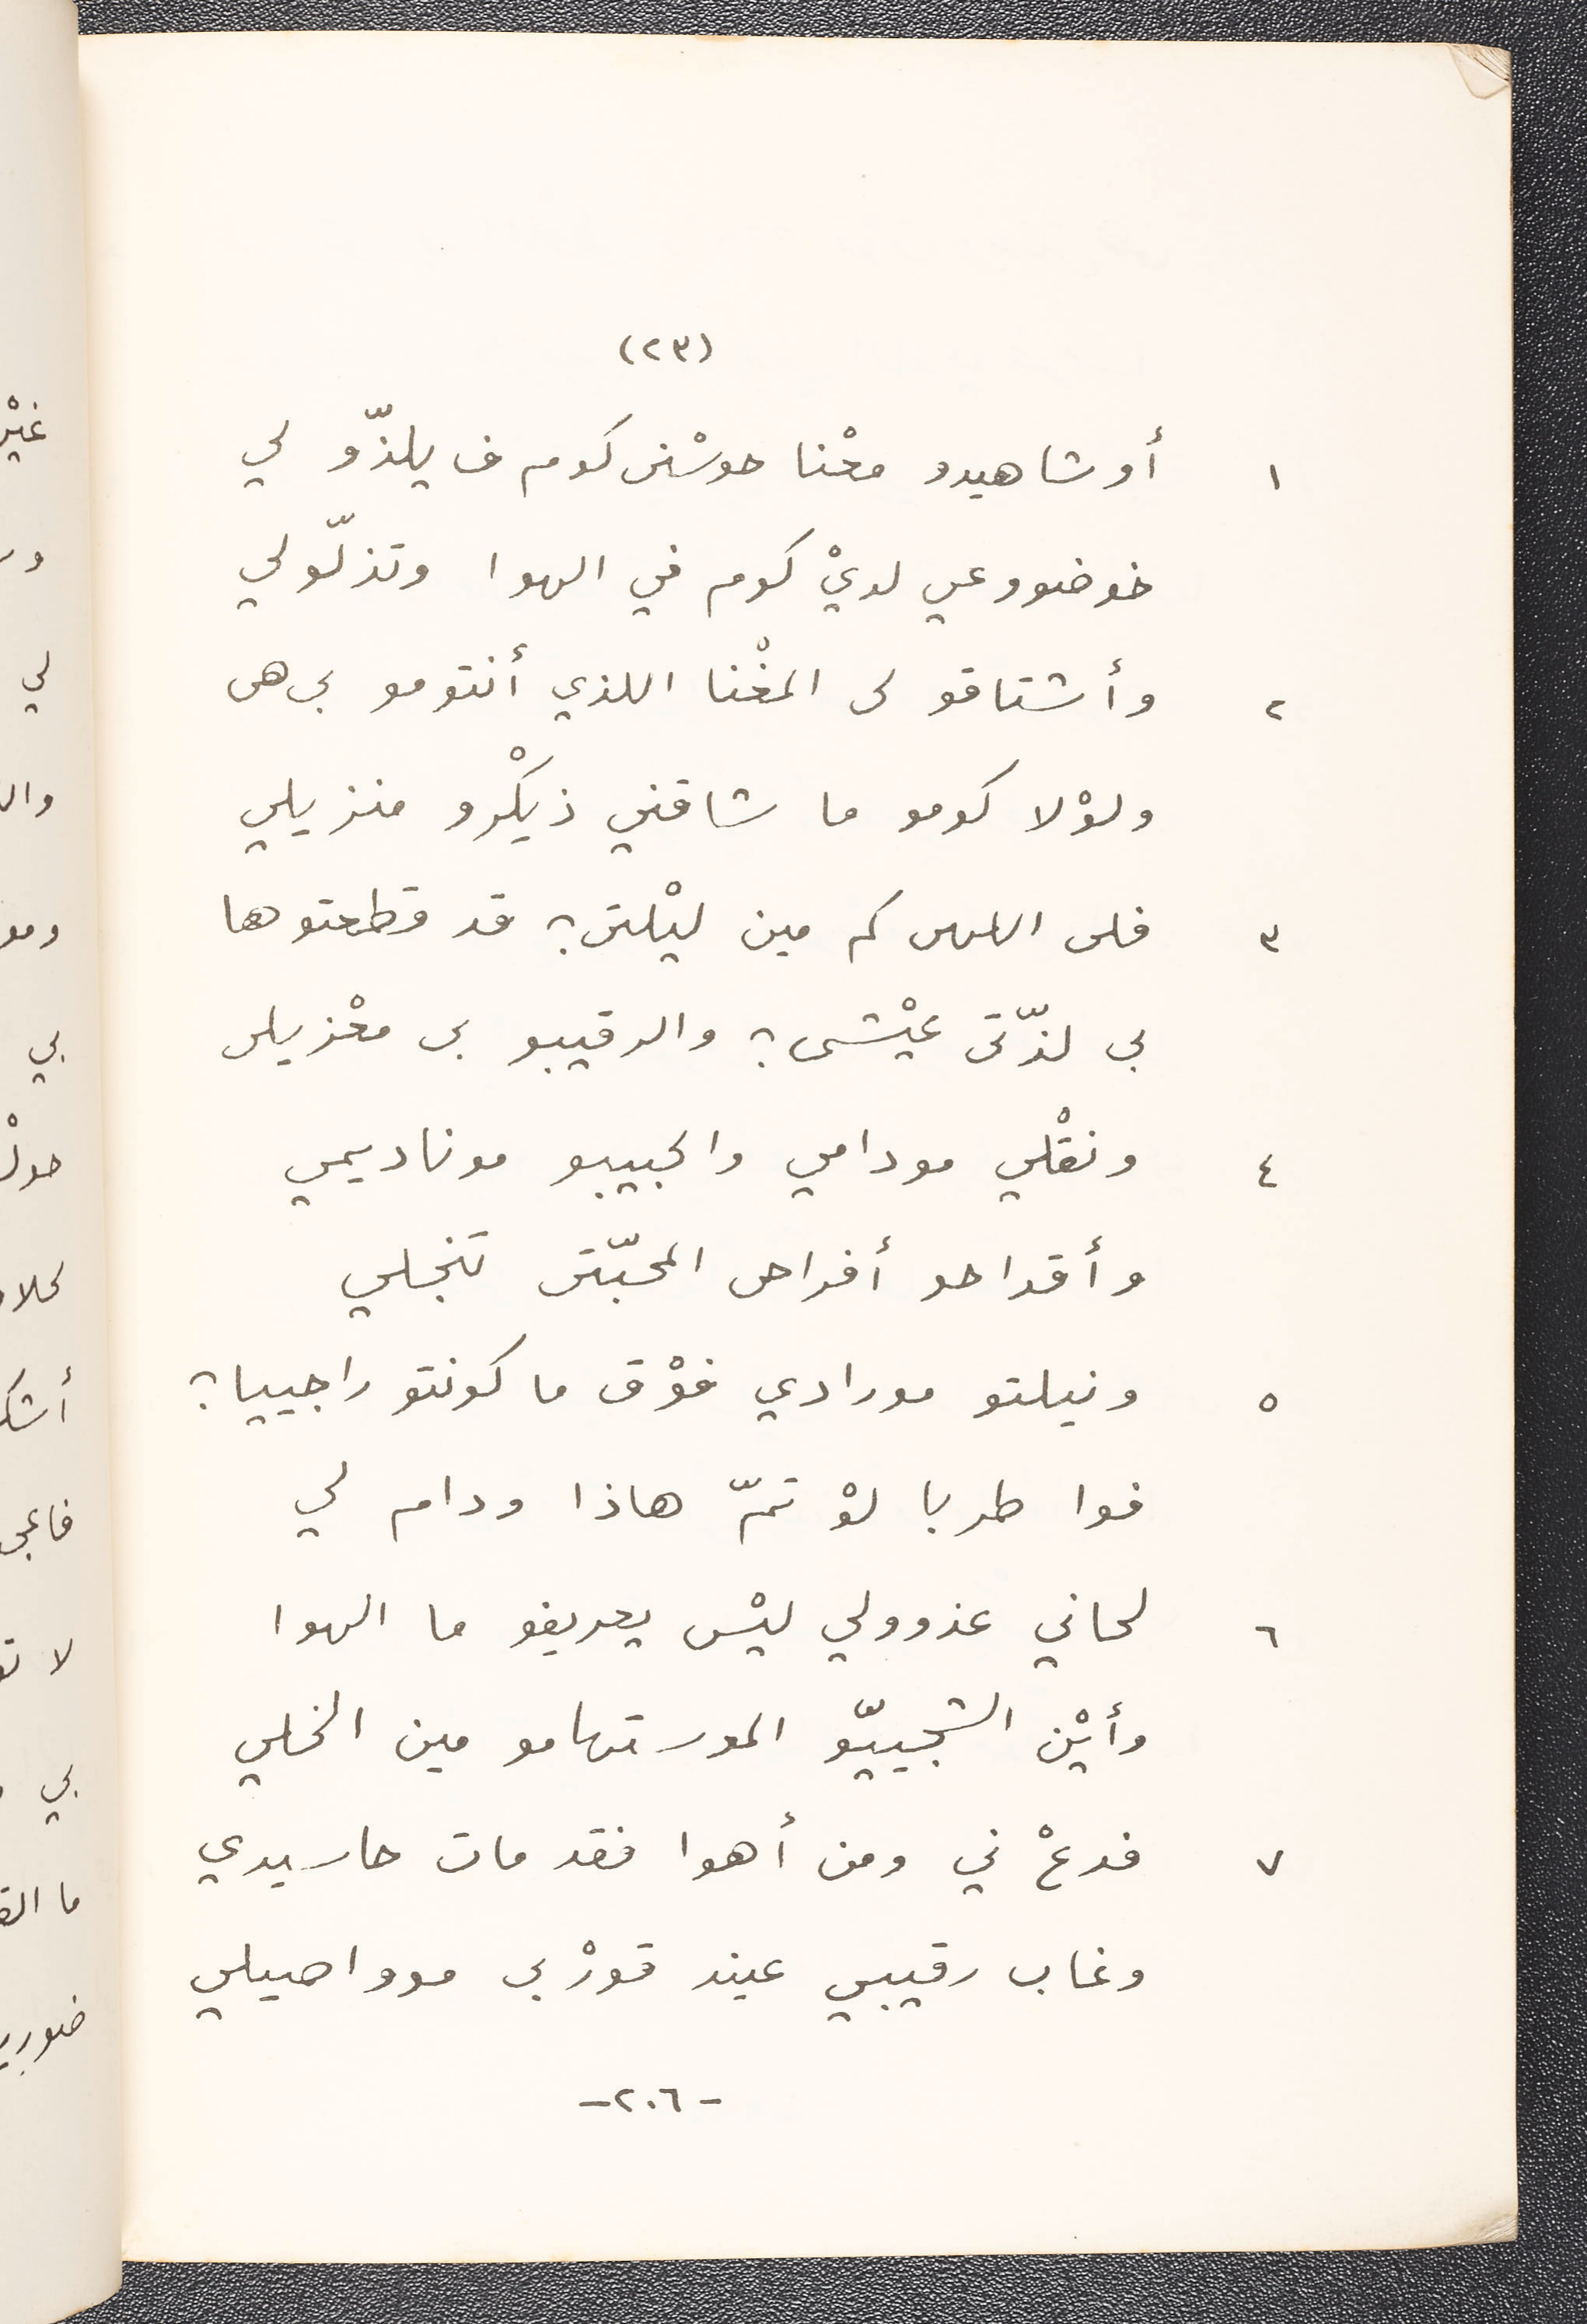 (٢٣)
١ أوشاهيدو معْنا حوسْنى كوم ف يلذّو لي
خوضووعي لديْ كوم في الهوا وتذلّولي
٢ وأشتاقو لى المغْنا اللذي أنتومو بى هى
ولوْلا كومو ما شاقني ذيكْرو منزيلي
٣ فلى اللهى كم مين ليْلتى؟ قد قطعتوها
بى لذّتى عيْشى؟ والرقيبو بى معْزيلى
٤ ونقْلي مودامي والحبيبو موناديمي
وأقداحو أفراحى المحبّتى تنجلي
٥ ونيلتو مورادي فوْق ما كونتو راجييا؟
فوا طربا لوْ تمّ هاذا ودام لي
٦ لحاني عذوولي ليْس يعريفو ما الهوا
وأيْن الشجييّو المورستهامو مين الخلي
٧ فدعْ ني ومن أهوا فقد مات حاسيدي
وغاب رقيبي عيند قورْبى موواصيلي
-٢٠٦-
غيْر
لي
وال
ومو
بي
حولْ
لا تو
بي
ما الق